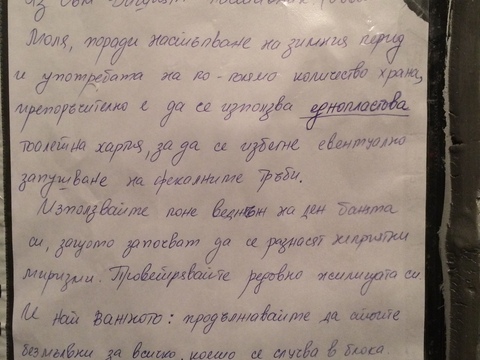 Аз съм Вашият
Моля, поради настъпване на зимния период
и употребата на по-голямо количество храна,
препоръчително е да се използва еднопластова
тоалетна хартия, за да се избегне евентуално
запушване на фекалните тръби.
Използвайте поне веднъж на ден банята
си, защото започват да се разнасят неприятни
миризми. Проветрявайте редовно жилищата си
И най важното: продължавайте да стоите
безмълвни за всичко, което се случва в блока.